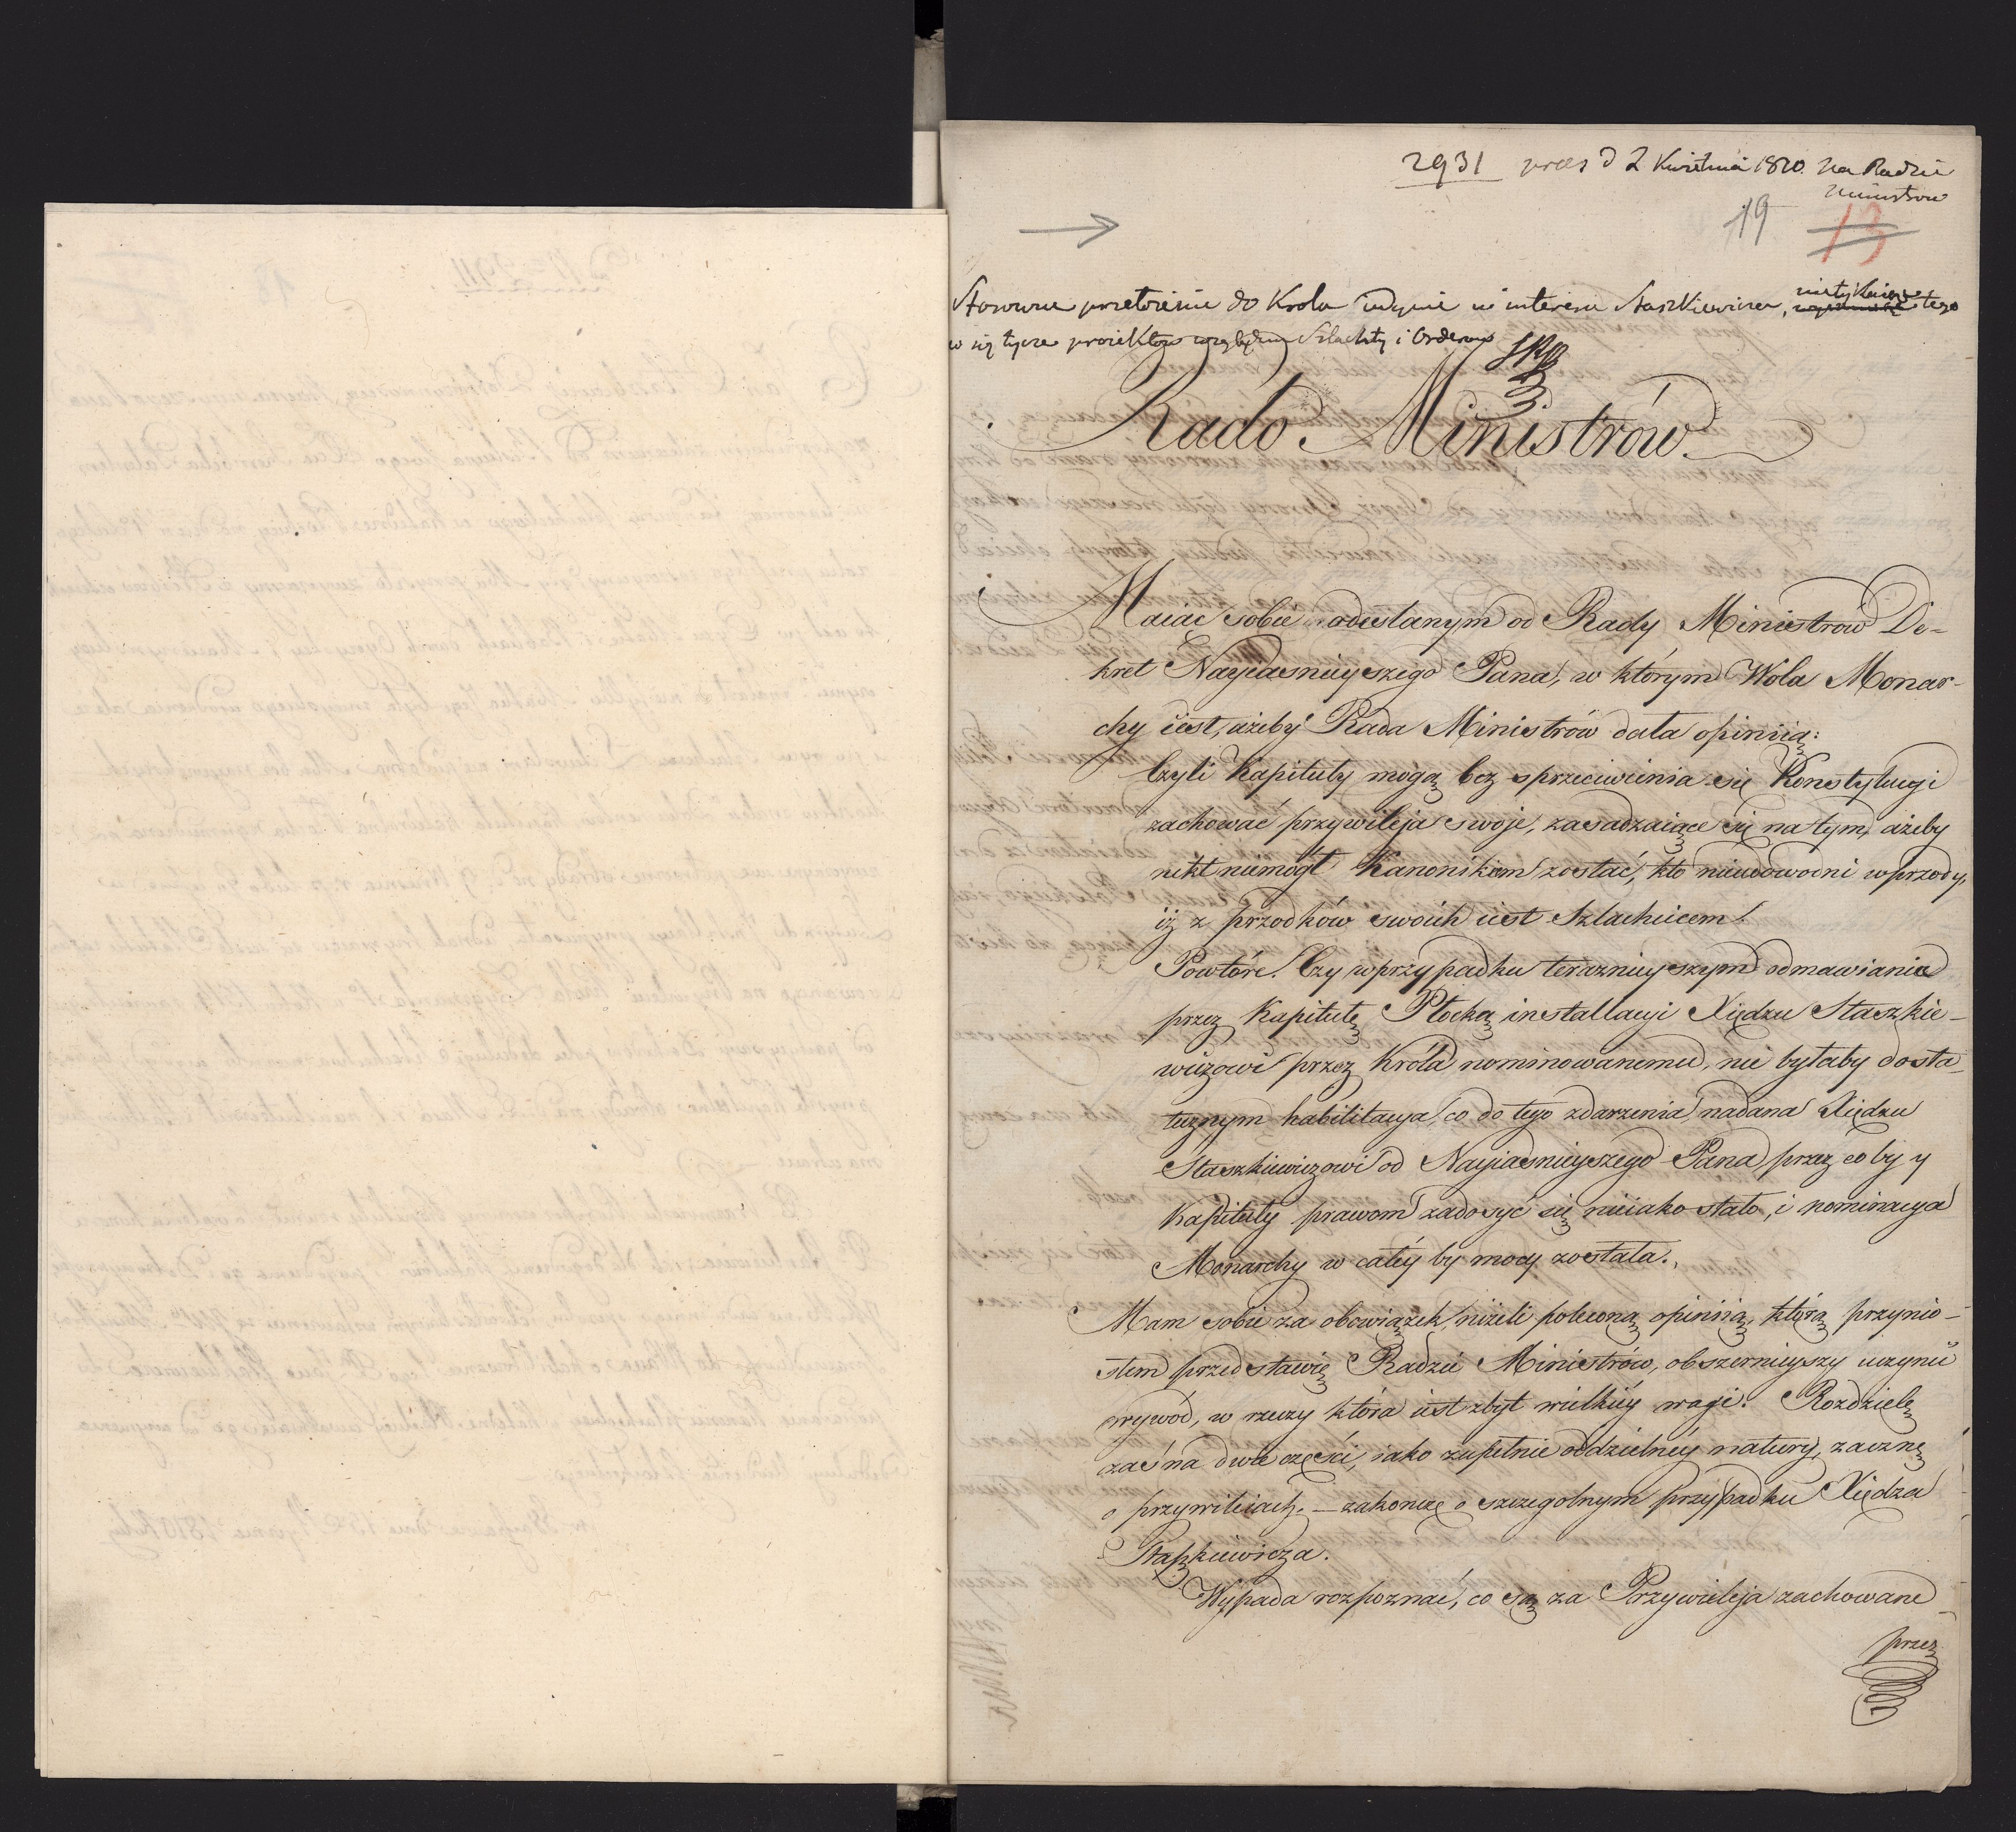 2931 prees d 2 Kwietnia 1810. na Radzie
Ministrow
19 13
Stosowne przełożenie do Krola iedynie w interesie Staszkiewicza, nietykaiąc tego
co się tycze proiektow względem Szlachty i Orderow
Rado Ministrów.
Maiąc sobie odesłanym od Rady Ministrów De-
kret Nayiasnieyszego Pana, w którym Wola Monar-
chy iest, ażeby Rada Ministrów dała opiniią:
Czyli Kapituły mogą bez sprzeciwienia się Konstytucyi
zachować przywileja swoje, zasadzaiące się na tym, ażeby
nikt niemógł Kanonikiem zostać, kto nieudowodni wprzody,
iż z przodków swoich iest Szlachcicem!
Powtóre. Czy wprzypadku teraznieyszym odmawiania
przez Kapitułę Płocką installacyi Xiędzu Staszkie-
wiczowi przez Króla nominowanemu, nie byłaby dosta-
tecznym habilitacya, co do tego zdarzenia nadana Xiędzu
Staszkiewiczowi od Nayiasnieyszego Pana, przez co by y
Kapituły prawom zadosyć się nieiako stało, i nominacya
Monarchy w całéy by mocy została.
Mam sobie za obowiązek, niżeli poleconą opiniią, którą przynio-
słem przedstawię Radzie Ministrów, obszernieyszy uczynić
wywód, w rzeczy która iest zbyt wielkiey wagi. Rozdzielę
zaś na dwie części, iako zupełnie oddzielnéy natury, zacznę
o przywileiach. — zakonczę o szczegolnym przypadku Xiędza
Staszkiewicza.
Wypada rozpoznać, co są za Przywileja zachowane
przez